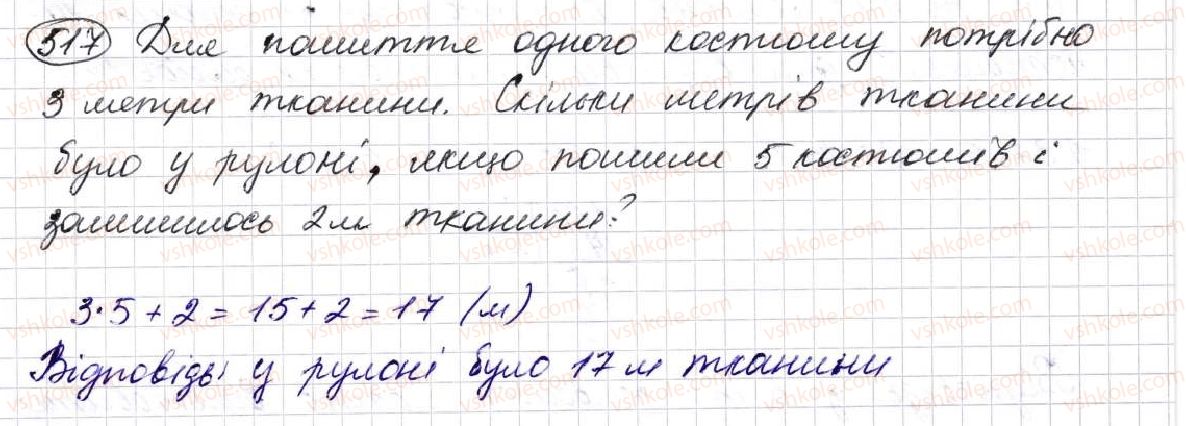 517 Для пошиття одного костюму потрібно
3 метри тканини. Скільки метрів тканини
було у рулоні, якщо пошили 5 костюмів і
залишилось 2 м тканини?
3·5+2=15+2=17 (м)
Відповідь: у рулоні було 17 м тканини